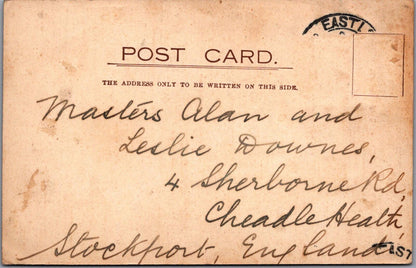 EASTL
POST CARD.
THE ADDRESS ONLY TO BE WRITTEN ON THIS SIDE.
Masters Alan and
Leslie Downes,
4 Sherborne Rd,
Cheadle Heath,
Stockport, England